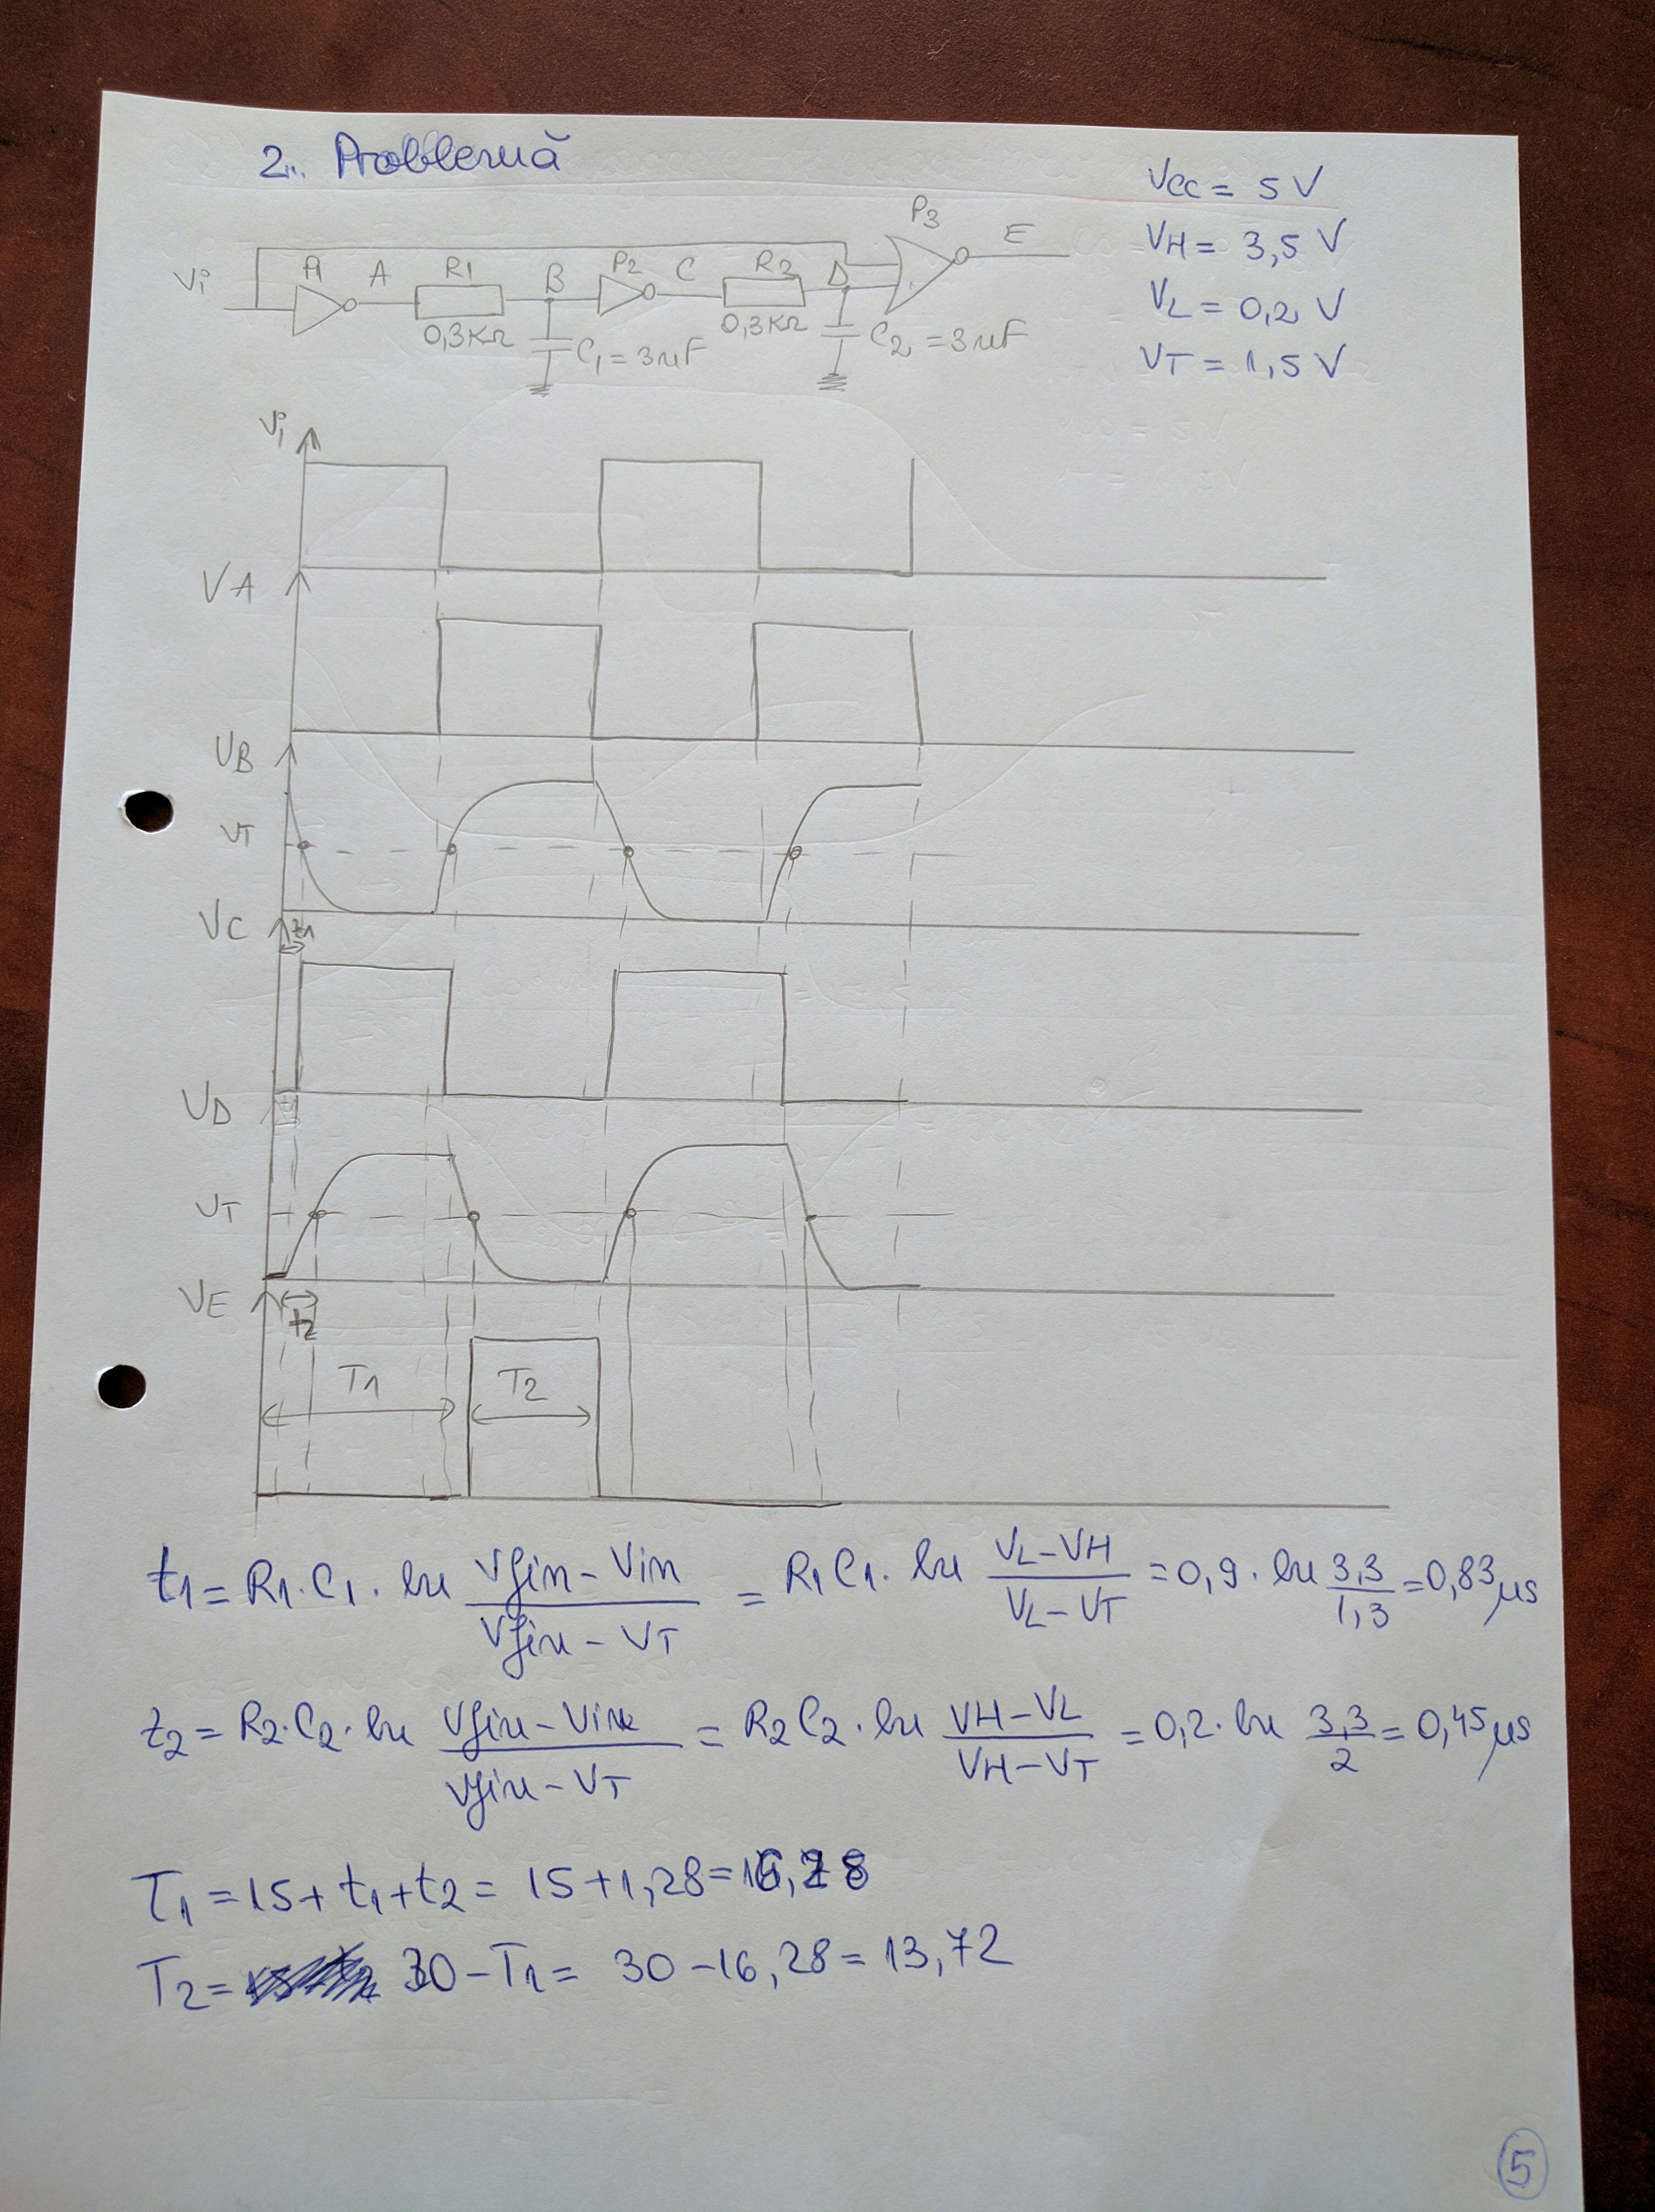 2. Problemă
VCC = 5 V
VH = 3,5 V
VL = 0,2 V
VT = 1,5 V
Vi A R1 B P2 C R2 D P3 E
0,3KΩ C1 = 3nF 0,3KΩ C2 = 3nF
Vi
VA
VB
VT
VC t1
VD
VT
VE t2
T1 T2
t1 = R1.C1. ln Vfin-Vin / Vfin-VT = R1C1. ln VL-VH / VL-VT = 0,9. ln 3,3 / 1,3 = 0,83 μs
t2 = R2.C2. ln Vfin-Vin / Vfin-VT = R2C2. ln VH-VL / VH-VT = 0,2. ln 3,3 / 2 = 0,45 μs
T1 = 15+ t1+t2 = 15+1,28 = 16,28
T2 = 30-T1 = 30-16,28 = 13,72
5